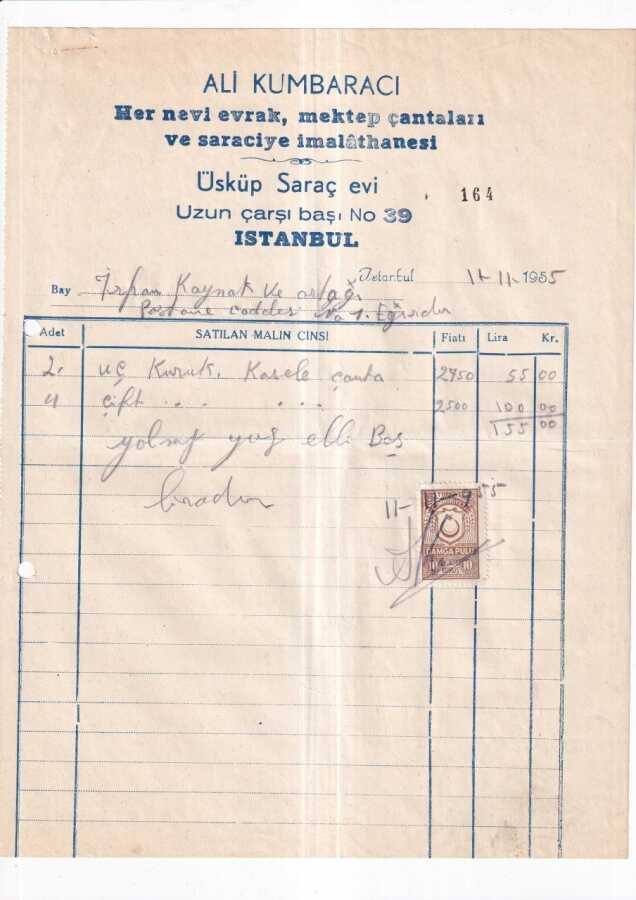 ALİ KUMBARACI
Her nevi evrak, mektep çantaları
ve saraciye imalâthanesi
Üsküp Saraç evi
164
Uzun çarşı başı No 39
ISTANBUL
İstanbul 11-11-1955
Bay İrfan Kaynak ve ortağı
Postane caddesi No 1. Eğirdir
Adet SATILAN MALIN CINSI Fiatı Lira Kr.
2. üç Kösele çanta 2750 55 00
4 çift 2500 100 00
155 00
yalnız yüz elli Beş
liradır
11-11-955
DAMGA PULU
10 10